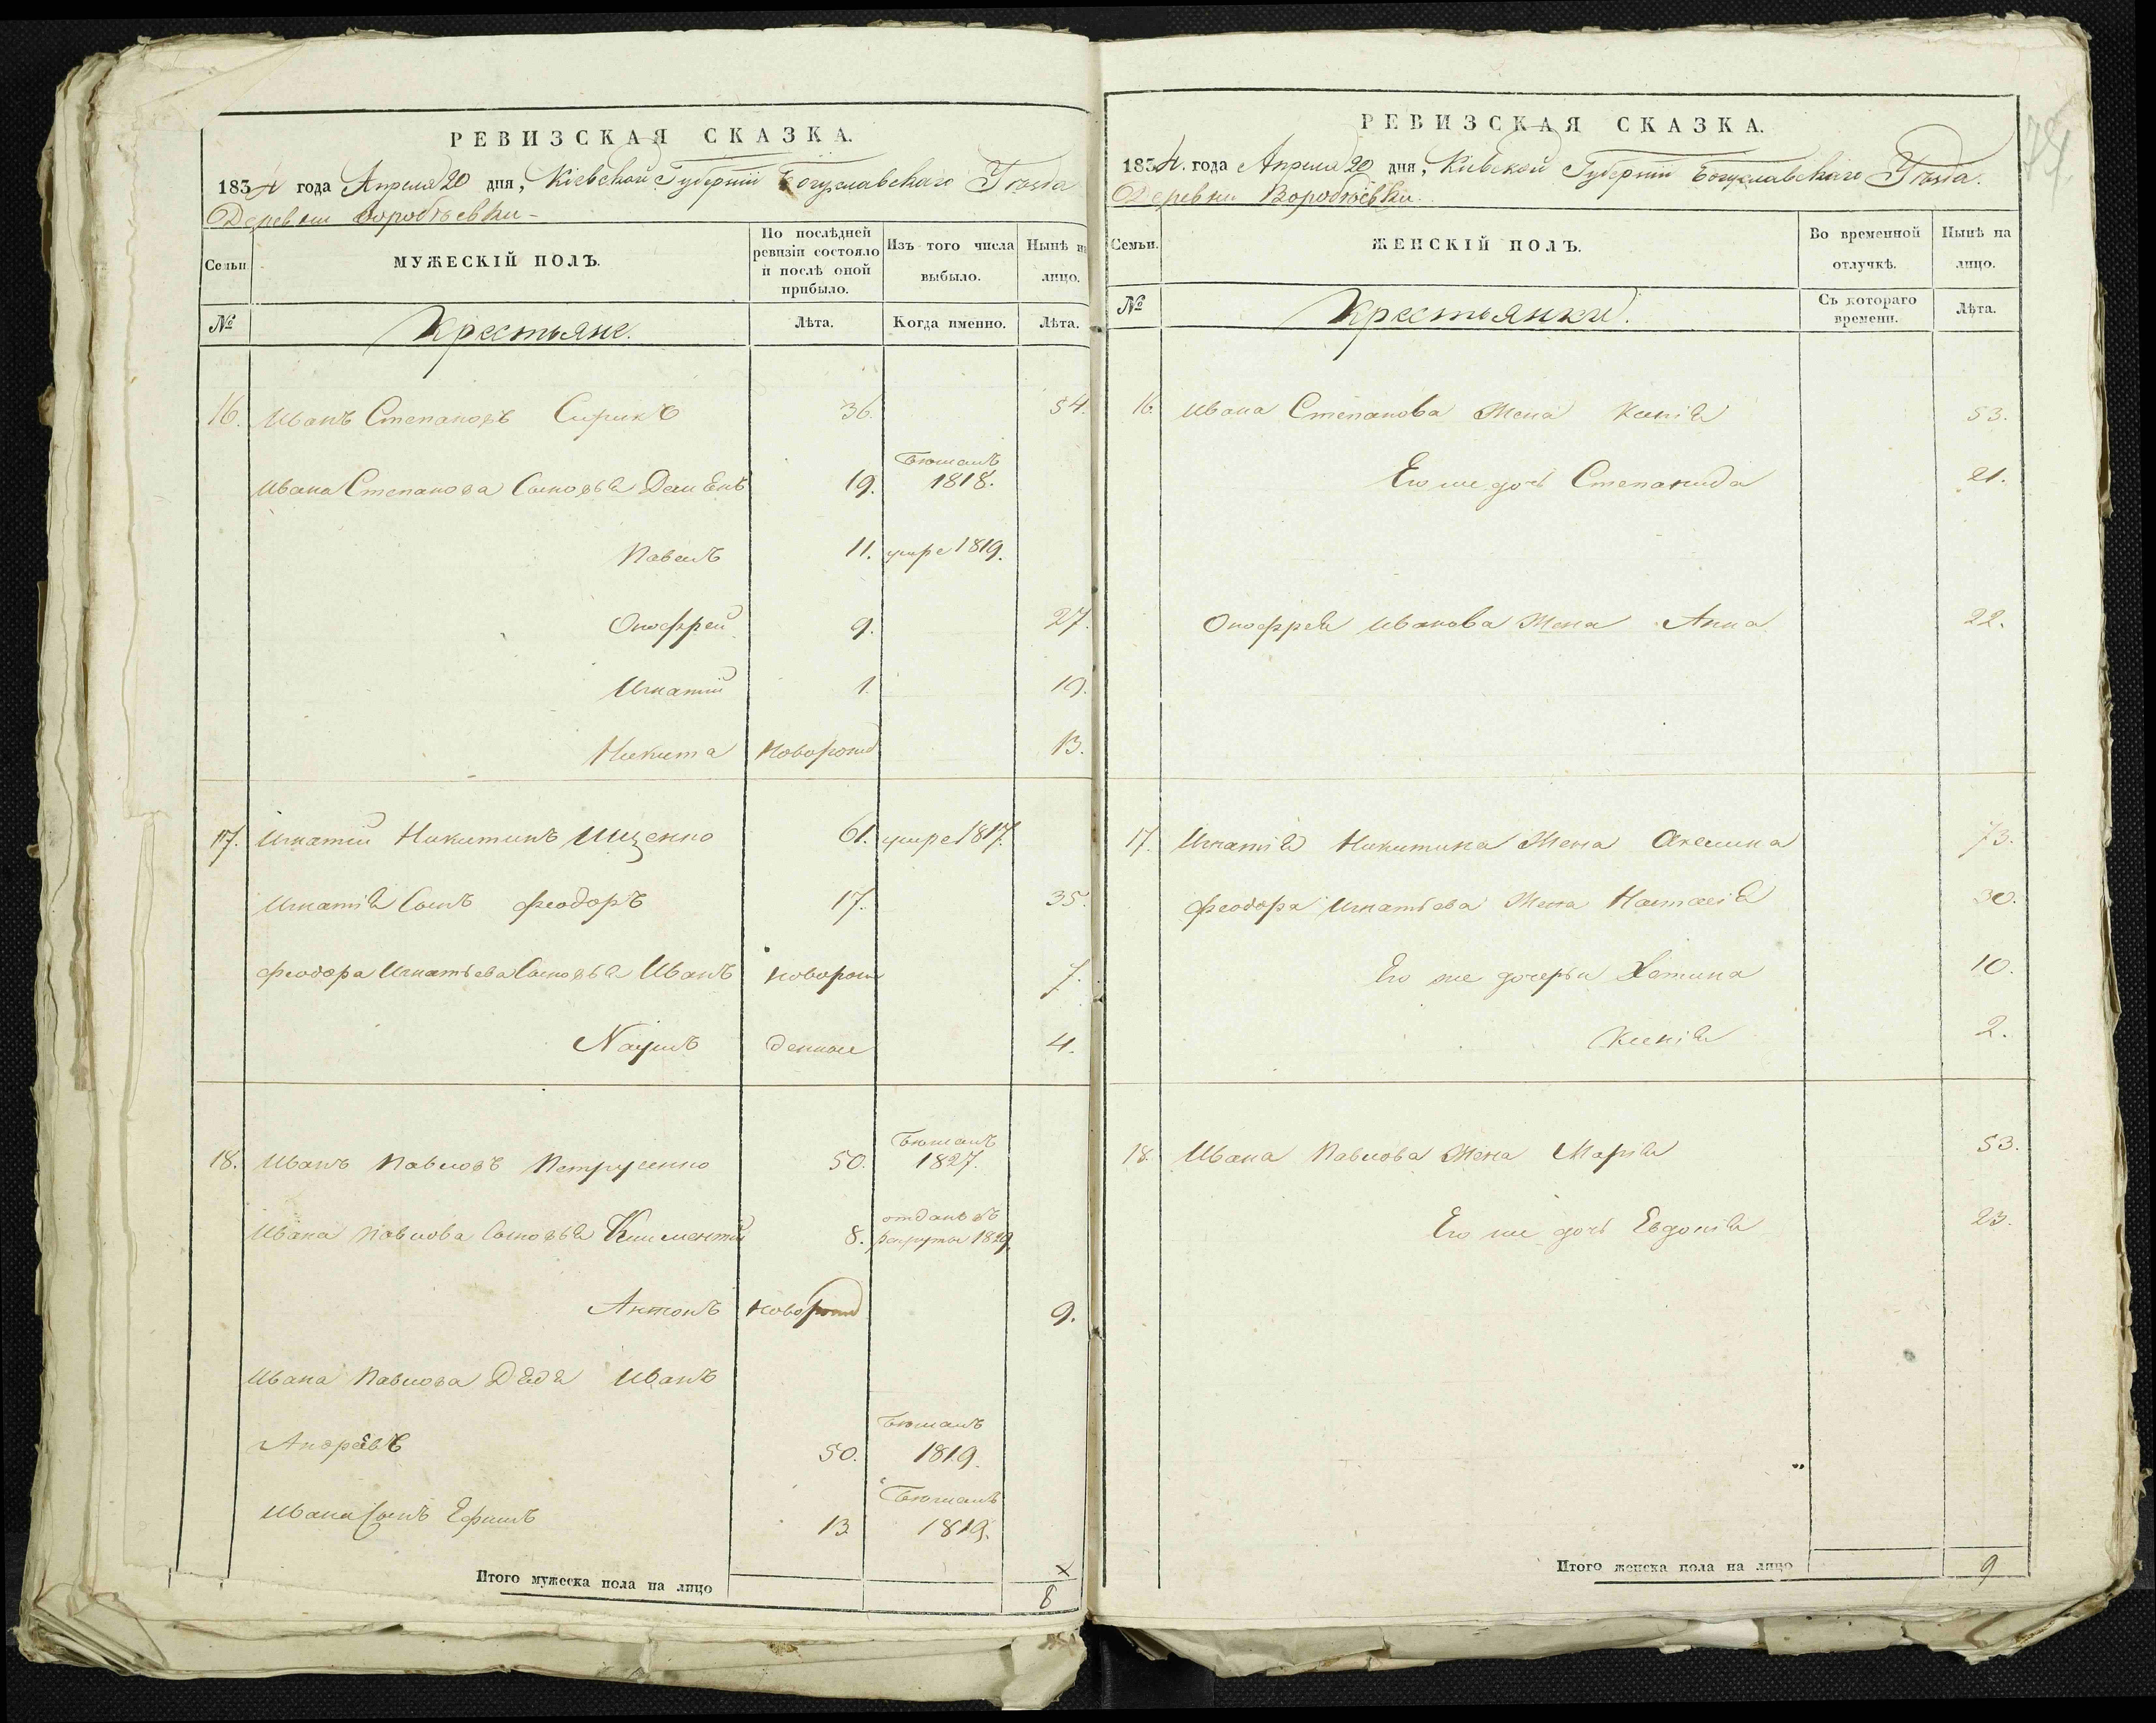 РЕВИЗСКАЯ СКАЗКА.
1834 года Апреля 20 дня, Кіевской Губерніи Богуславскаго Уѣзда
Деревни Воробіевки
Семьи.
МУЖЕСКІЙ ПОЛЪ.
По послѣдней ревизіи состояло и послѣ оной прибыло.
Изъ того числа выбыло.
Нынѣ на лицо.
№
Крестьяне.
Лѣта.
Когда именно.
Лѣта.
16. Иванъ Степановъ Сирикъ 36. 54.
Ивана Степанова Сыновья 19. бѣжалъ 1818.
Павелъ 11. умре 1819.
Оноффрей 9. 27.
Игнатій 1. 19.
Никита новорожд 13.
17. Игнатій Никитинъ Ищенко 61. умре 1817.
Игнатія Сынъ Феодоръ 17. 35.
Феодора Игнатьева Сыновья Иванъ новорож 7.
Наумъ денные 4.
18. Иванъ Павловъ Петрусенко 50. бѣжалъ 1827.
Ивана Павлова Сыновья Климентій 8. отданъ въ рекруты 1829.
Антонъ новорожд 9.
Ивана Павлова Дядя Иванъ
Андреевъ 50. бѣжалъ 1819.
Ивана Сынъ Ефимъ 13 бѣжалъ 1819.
Итого мужеска пола на лицо 8
РЕВИЗСКАЯ СКАЗКА.
1834. года Апреля 20 дня, Кіевской Губерніи Богуславскаго Уѣзда.
Деревни Воробіевки.
Семьи.
ЖЕНСКІЙ ПОЛЪ.
Во временной отлучкѣ.
Нынѣ на лицо.
№
Крестьянки.
Съ котораго времени.
Лѣта.
16. Ивана Степанова Жена Ксенія 53.
Его же дочь Степанида 21.
Оноффрея Иванова Жена Анна 22.
17. Игнатія Никитина Жена Акелина 73.
Феодора Игнатьева Жена Настасія 30.
Его же дочерьи 10.
Ксенія 2.
18. Ивана Павлова Жена Марія 53.
Его же дочь Евдокія 23.
Итого женска пола на лицо 9